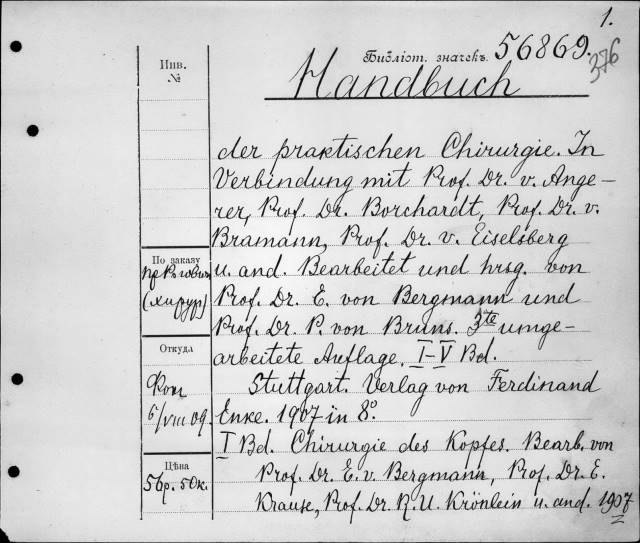 1.
Библіот. значекъ. 56869.
376
Инв.
№
Handbuch
der praktischen Chirurgie. In
Verbindung mit Prof. Dr. v. Ange-
rer, Prof. Dr. Borchardt, Prof. Dr. v.
Bramann, Prof. Dr. v. Eiselsberg
u. and. Bearbeitet und hrsg. von
Prof. Dr. E. von Bergmann und
Prof. Dr. P. von Bruns. 3te umge-
arbeitete Auflage. I-V Bd.
Stuttgart. Verlag von Ferdinand
Enke. 1907 in 8°.
I Bd. Chirurgie des Kopfes. Bearb. von
Prof. Dr. E. v. Bergmann, Prof. Dr. E.
Krause, Prof. Dr. R. U. Krönlein u. and. 1907
По заказу
(хирур)
Откуда
Фон
6/VIII 09
Цѣна
56р. 50к.